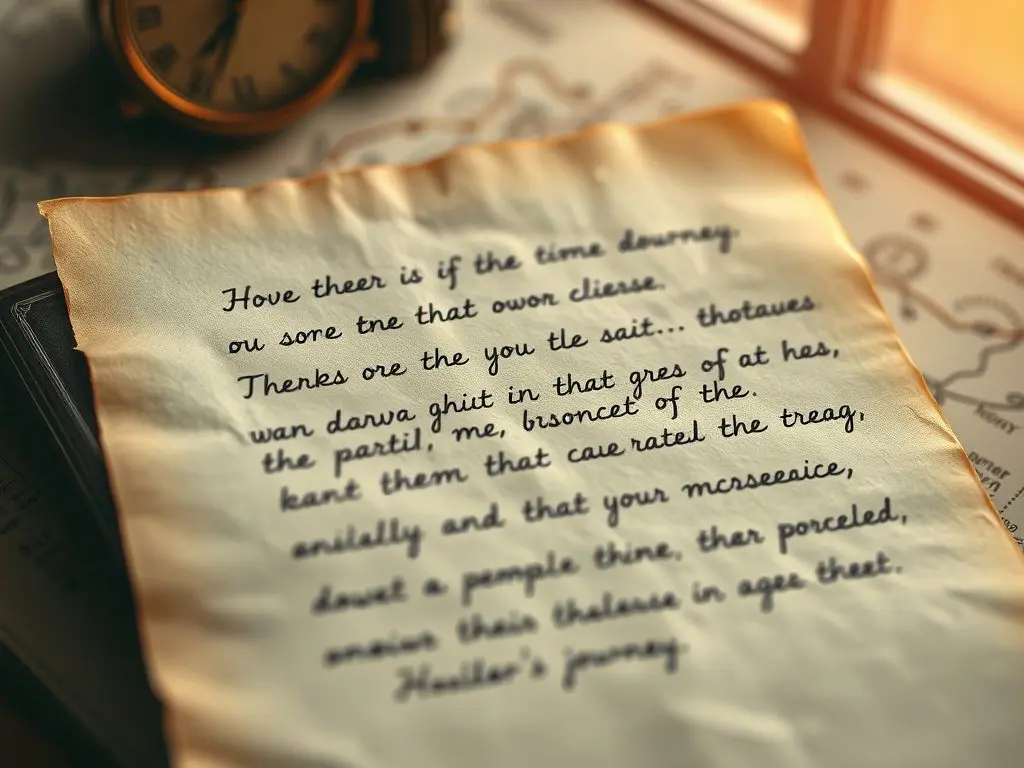 Hove theer is if the time dourney.
ou sore tne that owor clierse.
Therks ore the you tle sait... thotaues
wan darva ghiut in that gres of at hes,
the partil, me, bisoncet of the.
kant them that caue rated the treag,
anilally and that your mcrseeaice,
dowet a pemple thine, ther porceled,
theis in agee theet.
journey.